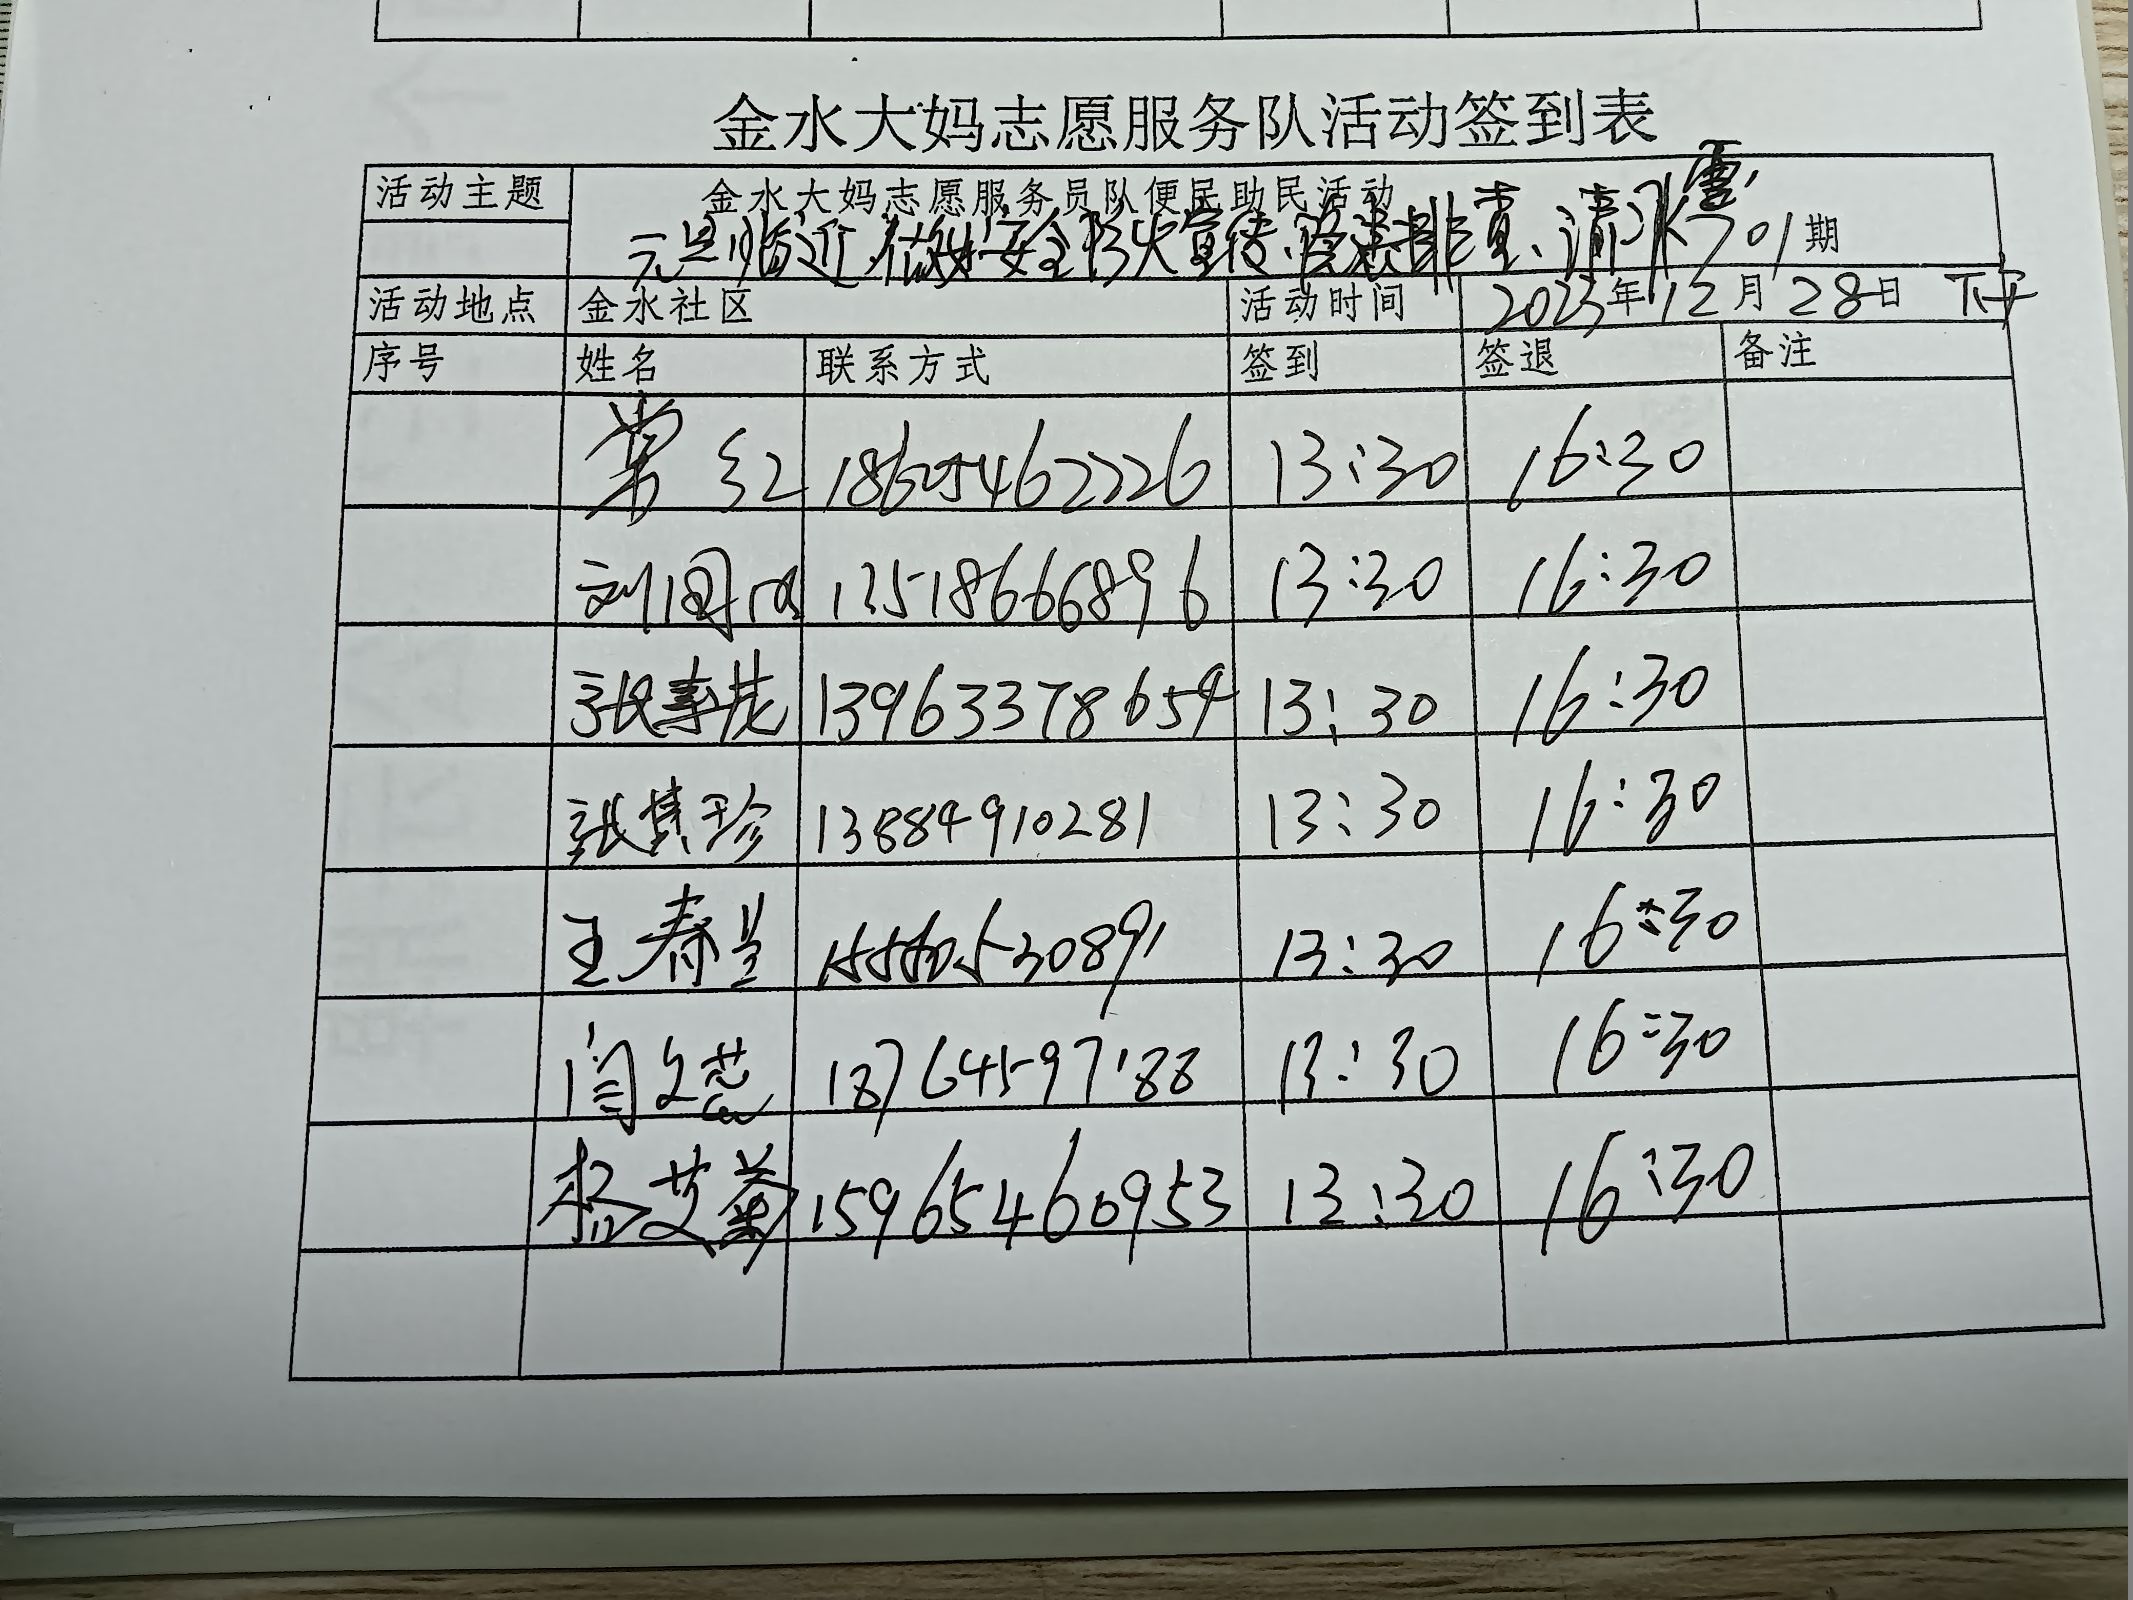 金水大妈志愿服务队活动签到表
活动主题 金水大妈志愿服务员队便民助民活动
元旦临近,做好安全防火宣传、隐患排查、清冰雪, 701期
活动地点 金水社区 活动时间 2023年12月28日 下午
序号 姓名 联系方式 签到 签退 备注
常红 18605462226 13:30 16:30
13518666896 13:30 16:30
13963378654 13:30 16:30
张其珍 13884910281 13:30 16:30
王春兰 15560530891 13:30 16:30
闫文蕊 18764597188 13:30 16:30
杨艾菊 15965460953 13:30 16:30